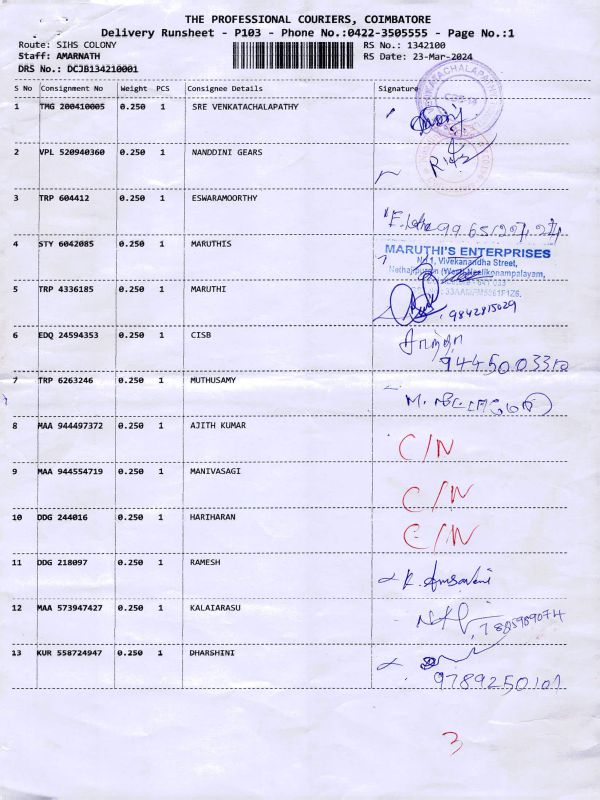 THE PROFESSIONAL COURIERS, COIMBATORE
Delivery Runsheet - P103 - Phone No.:0422-3505555 - Page No.:1
Route: SIHS COLONY RS No.: 1342100
Staff: AMARNATH RS Date: 23-Mar-2024
DRS No.: DCJB134210001
S No Consignment No Weight PCS Consignee Details Signature
1 TMG 200410005 0.250 1 SRE VENKATACHALAPATHY
2 VPL 520940360 0.250 1 NANDDINI GEARS
3 TRP 604412 0.250 1 ESWARAMOORTHY
4 STY 6042085 0.250 1 MARUTHIS
MARUTHI'S ENTERPRISES
No.1, Vivekanandha Street,
5 TRP 4336185 0.250 1 MARUTHI
9842815029
6 EDQ 24594353 0.250 1 CISB
7 TRP 6263246 0.250 1 MUTHUSAMY
8 MAA 944497372 0.250 1 AJITH KUMAR C/N
9 MAA 944554719 0.250 1 MANIVASAGI C/N
10 DDG 244016 0.250 1 HARIHARAN C/N
11 DDG 218097 0.250 1 RAMESH
12 MAA 573947427 0.250 1 KALAIARASU
13 KUR 558724947 0.250 1 DHARSHINI
9789250101
3